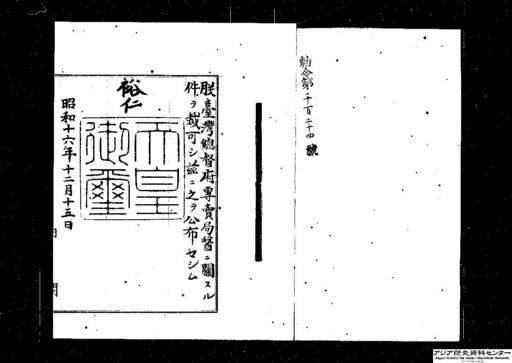 勅令第千百二十四號
朕臺灣總督府專賣局醫ニ關スル
件ヲ裁可シ茲ニ之ヲ公布セシム
裕仁
天皇
御璽
昭和十六年十二月十五日
内閣
アジア歴史資料センター
Japan Center for Asian Historical Records